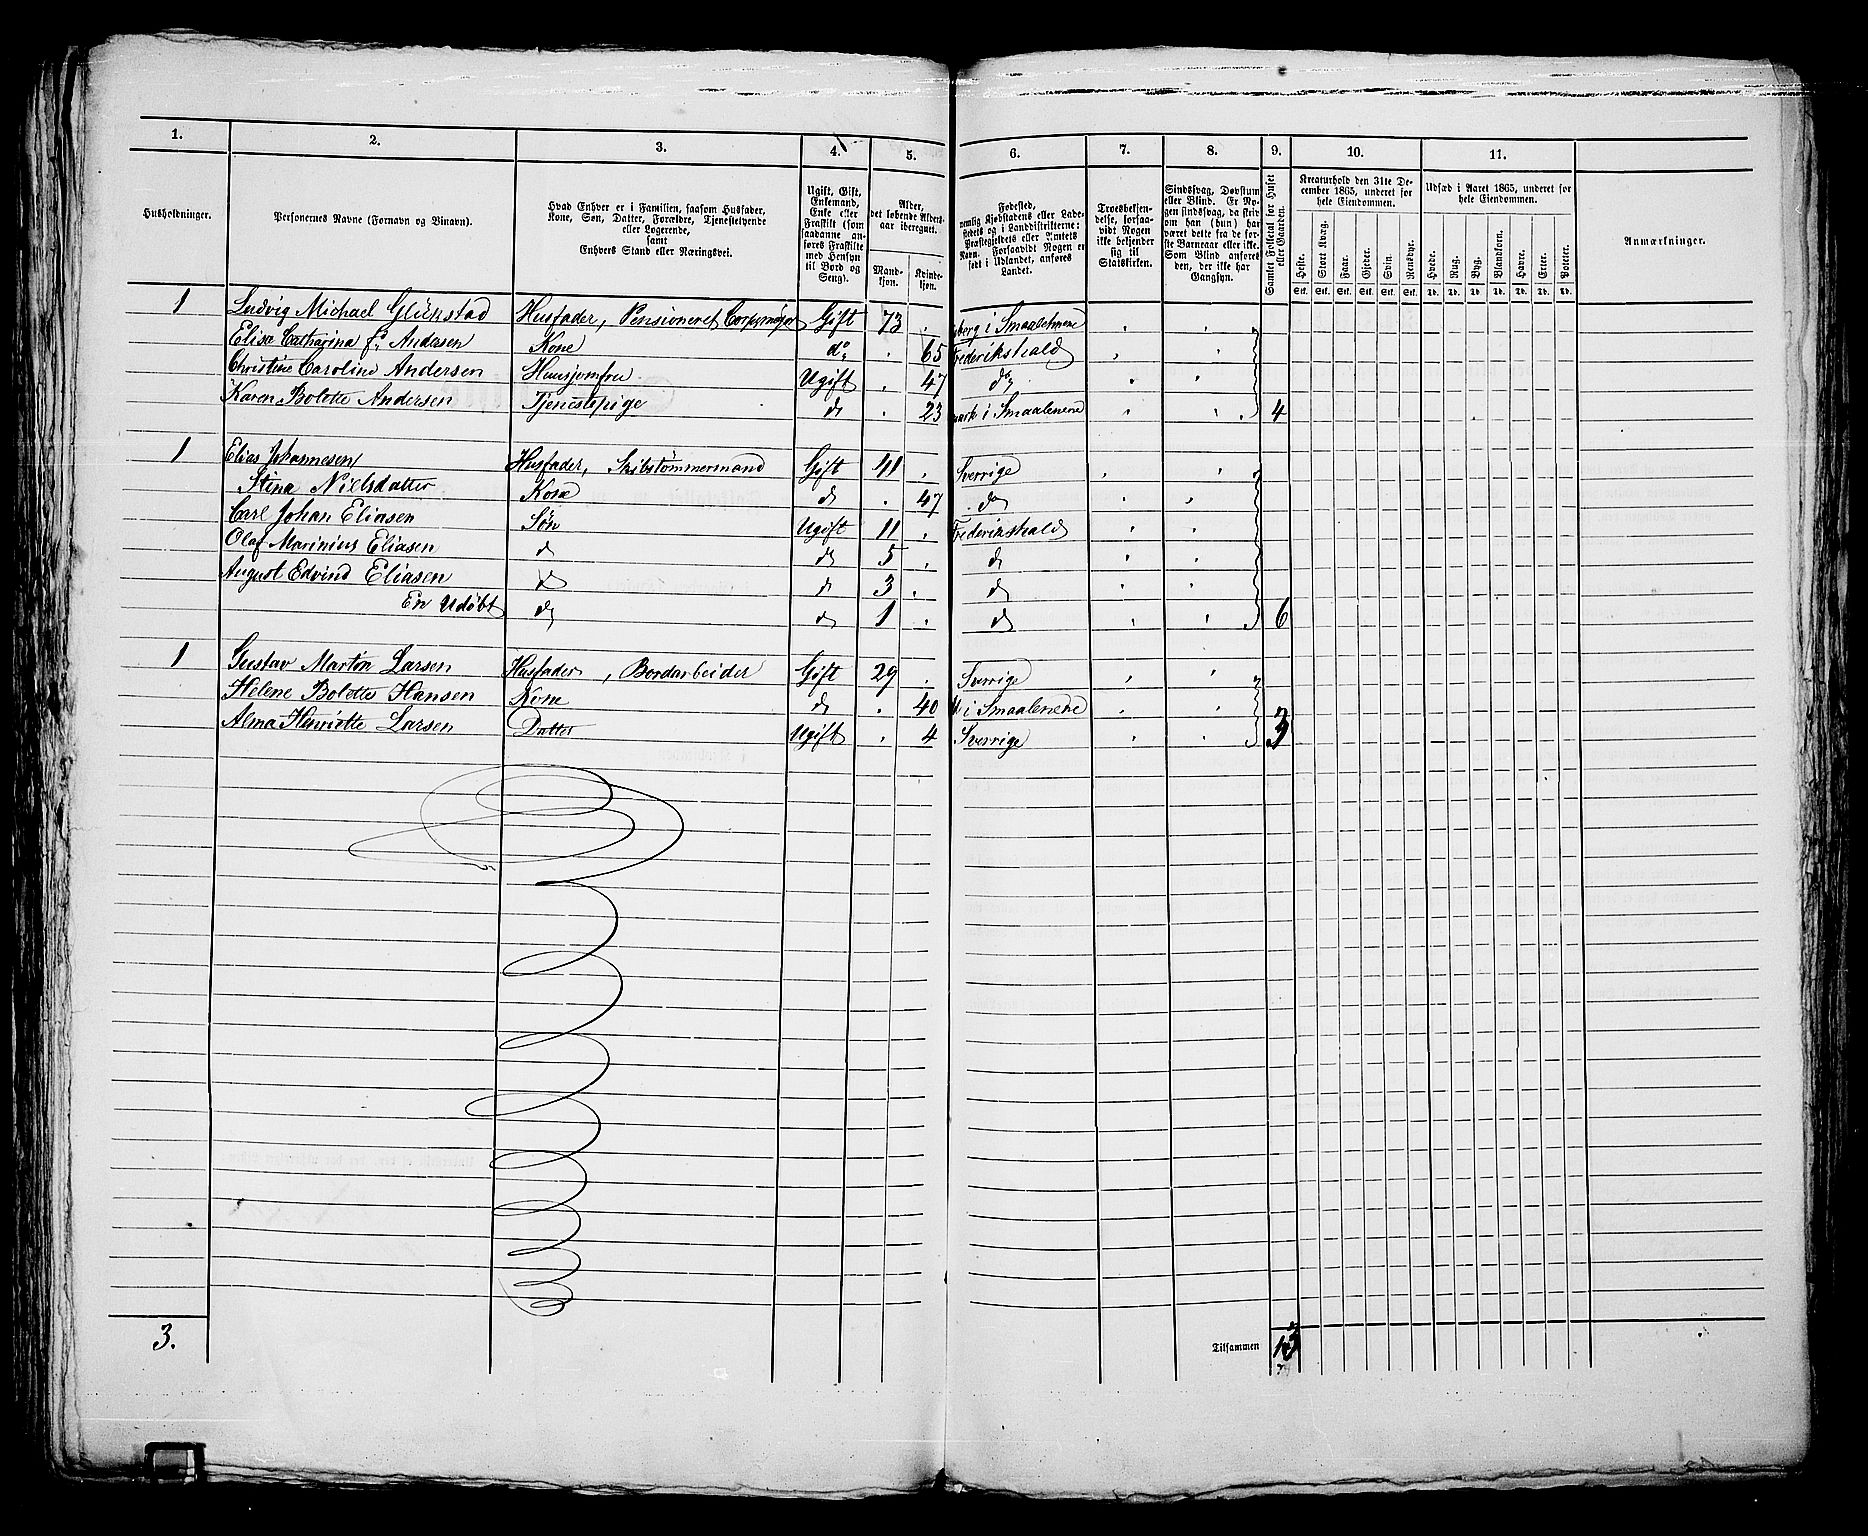 1. 2. 3. 4. 5. 6. 7. 8. 9. 10. 11.
Husholdninger.
Personernes Navne (Fornavn og Binavn).
Hvad Enhver er i Familien, saasom Husfader,
Kone, Søn, Datter, Forældre, Tjenestetyende
eller Logerende,
samt
Enhvers Stand eller Næringsvei.
Ugift, Gift,
Enkemand,
Enke eller
Fraskilt (som
saadanne an-
føres Fraskilte
med Hensyn
til Bord og
Seng).
Alder,
det løbende Alders-
aar iberegnet.
Mand-
kjøn.
Kvinde-
kjøn.
Fødested,
nemlig Kjøbstadens eller Lade-
stedets og i Landdistrikterne:
Præstegjeldets eller Amtets
Navn. Forsaavidt Nogen er
født i Udlandet, anføres
Landet.
Troesbekjen-
delse, forsaa-
vidt Nogen
ikke bekjender
sig til
Statskirken.
Sindssvag, Døvstum
eller Blind. Er No-
gen sindssvag, da skriv
om han (hun) har
været dette fra de før-
ste Barneaar eller ikke.
Som Blind anføres
den, der ikke har
Gangsyn.
Samlet Folketal for Huset
eller Gaarden.
Kreaturhold den 31te De-
cember 1865, underet for
hele Eiendommen.
Heste. Stort Kvæg. Faar. Gjeter. Svin. Rensdyr.
Stk. Stk. Stk. Stk. Stk. Stk.
Udsæd i Aaret 1865, underet for
hele Eiendommen.
Hvede. Rug. Byg. Blandkorn. Havre. Erter. Poteter.
Td. Td. Td. Td. Td. Td. Td.
Anmærkninger.
1 Ludvig Michael Glückstad Husfader, Pensioneret Corpsmajor Gift 73 berg i Smaalenene
Elise Catharina f. Andersen Kone do 65 Frederikshald
Christine Caroline Andersen Huusjomfru Ugift 47 do
Karen Bolette Andersen Tjenestepige do 23 i Smaalenene 4
1 Elias Johannesen Husfader, Skibstømmermand Gift 41 Sverrige
Stina Nielsdatter Kone do 47 do
Carl Johan Eliasen Søn Ugift 11 Frederikshald
Olaf Marinius Eliasen do do 5 do
August Edvind Eliasen do do 3 do
En Udøbt do do 1 do 6
1 Gustav Martin Larsen Husfader, Bordarbeider Gift 29 Sverrige
Helene Bolette Hansen Kone do 40 i Smaalenene
Alma Henriette Larsen Datter Ugift 4 Sverrige 3
3. Tilsammen 13